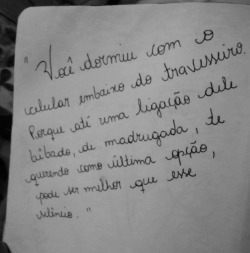 "Você dormiu com o
celular embaixo do travesseiro.
Porque até uma ligação dele
bêbado, de madrugada, te
querendo como última opção,
pode ser melhor que esse
silêncio."